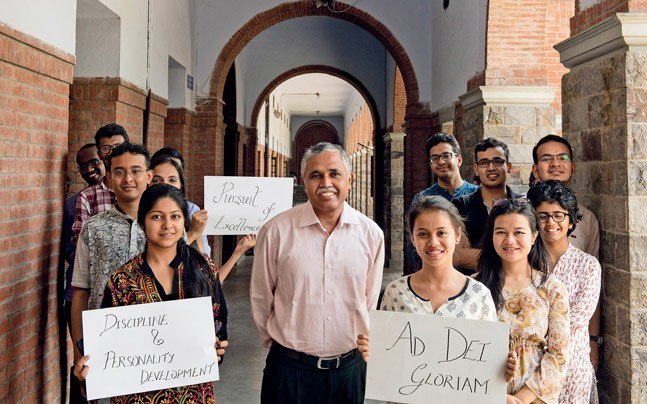 PURSUIT
of
Excellence
DISCIPLINE
&
PERSONALITY
DEVELOPMENT
AD DEI
GLORIAM